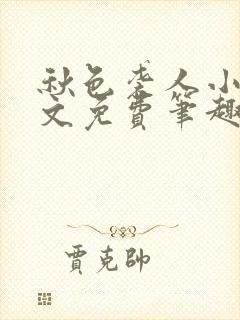 秋色袭人小
文免費筆趣
賈克帥